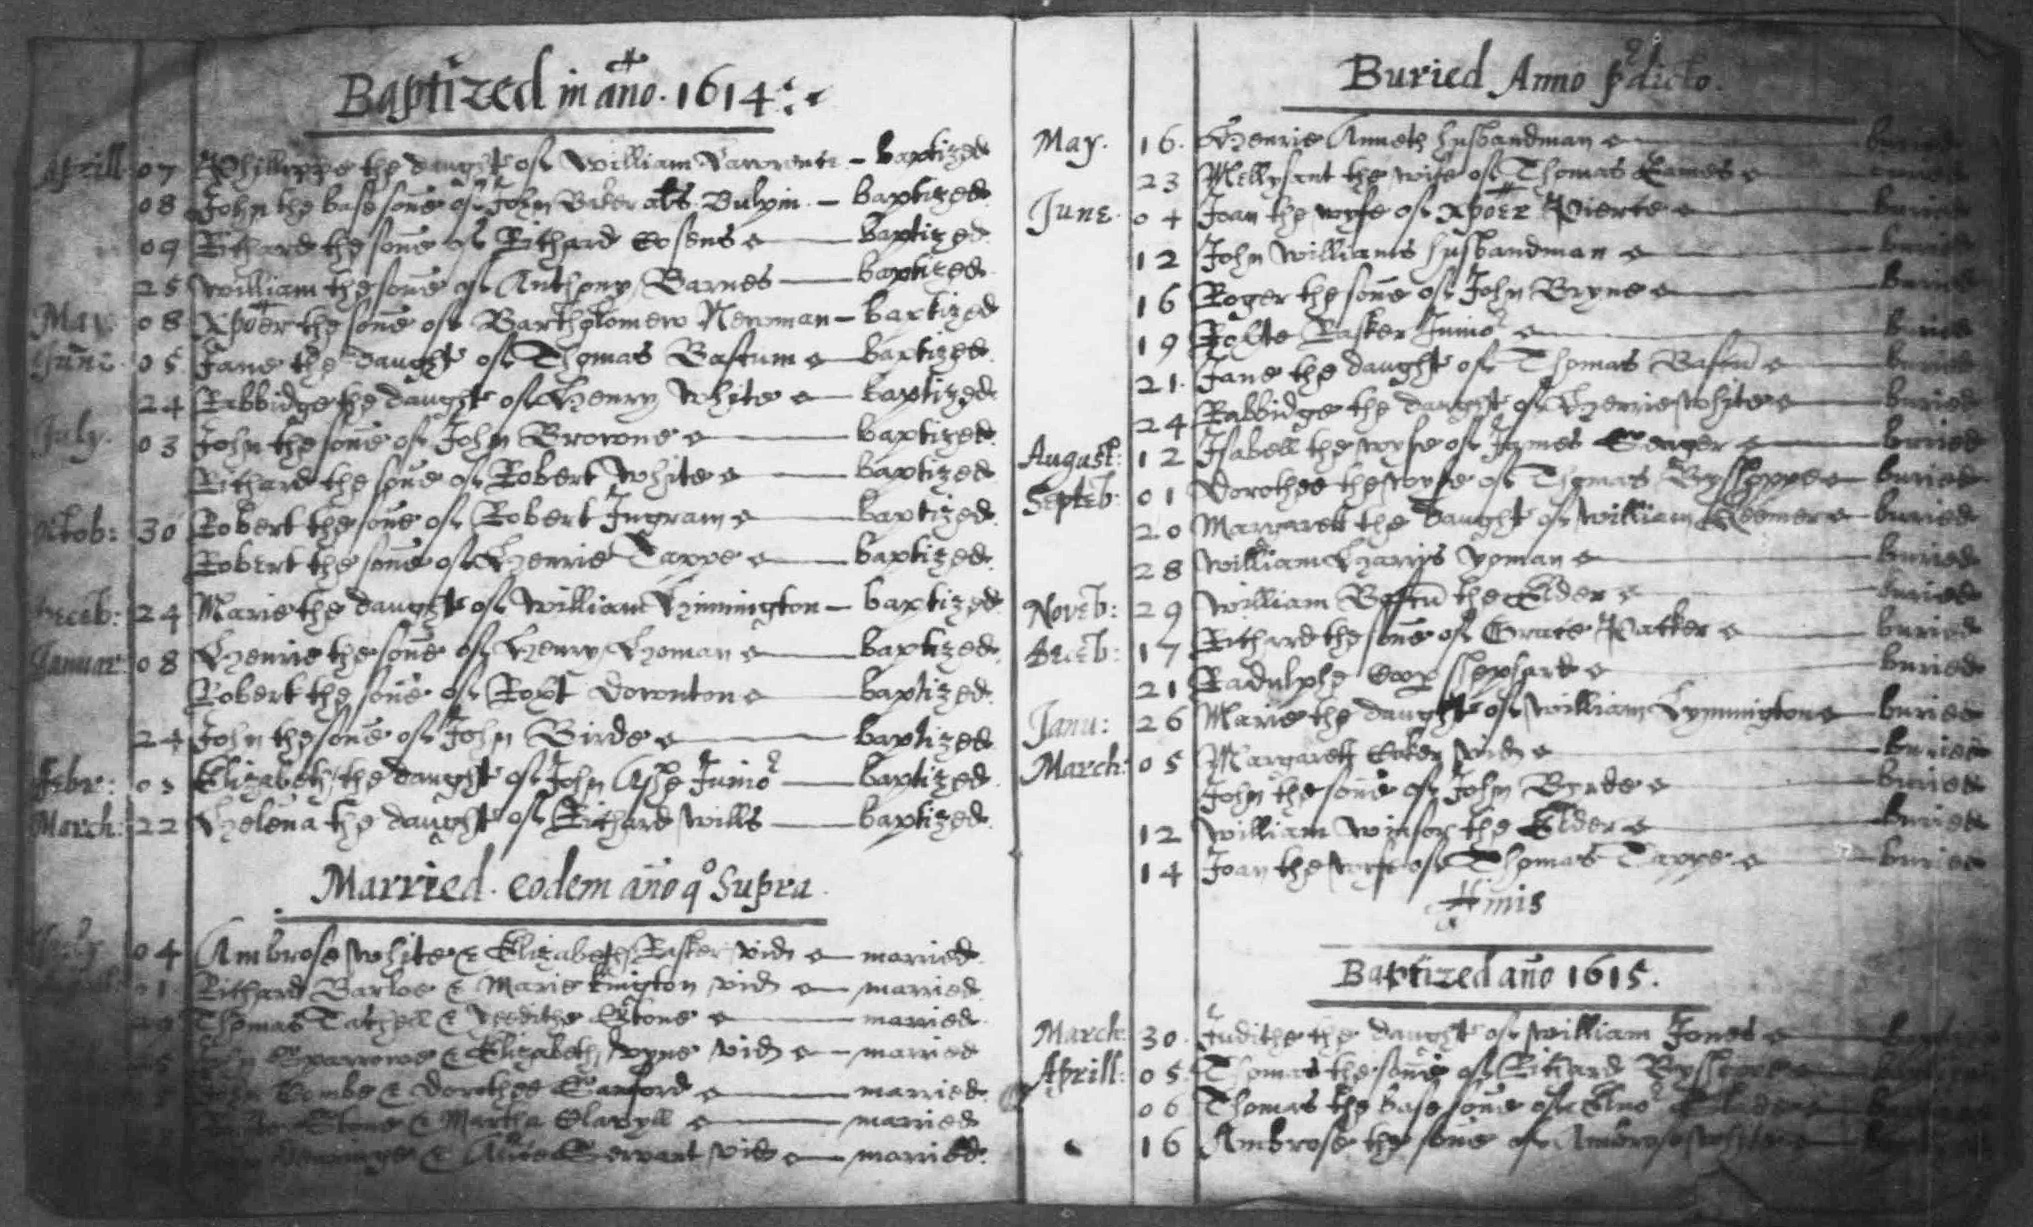 Baptized in año. 1614
Aprill 07 Phillippe the daught of William Lawrence baptized
08 John the base soñe of John Baker als Bulpin baptized
09 Richard the soñe of Richard Cosens baptized
25 William the soñe of Anthony Barnes baptized
May 08 Xpoer the soñe of Bartholomew Newman baptized
June 05 Jane the daught of Thomas Bastum baptized
24 Rabbidge the daught of Henry White baptized
July. 03 John the soñe of John Browne baptized
Richard the soñe of Robert White baptized
Octob: 30 Robert the soñe of Robert Ingram baptized
Robert the soñe of Henrie Tappe baptized
Deceb: 24 Marie the daught of William Hinnington baptized
Januar 08 Henrie the soñe of Henry Homan baptized
Robert the soñe of Robt Downton baptized
24 John the soñe of John Birde baptized
Febr: 03 Elizabeth the daught of John Junior baptized
March: 22 Helena the daught of Richard Wills baptized
Married. eodem año qo Supra.
04 Ambrose White & Elizabeth Rasker vid married
Richard Barloe & Marie Kington vid married
Thomas Tatchell & married
Sparrowe & Elizabeth Vyne vid married
John Combe & Dorothee married
Stone & Martha married
& Alice Servant vid married
Buried Anno pdicto.
May. 16. Henrie Annetz husbandman buried
23 Mellysant the wife of Thomas Eames buried
June 04 Joan the wyfe of Xpoer Pierce buried
12 John Williams husbandman buried
16 Roger the soñe of John Bryne buried
19 Rasker Junior buried
21. Jane the daught of Thomas Bastũ buried
24 Rabbidge the daught of Henrie White buried
August: 12 Isabell the wyfe of James Seager buried
Septeb: 01 Dorothee the wyfe of Thomas Bysshoppe buried
20 Margarett the daught of William buried
28 William Harris yoman buried
Noveb: 29 William Bastũ the Elder buried
Deceb: 17 Richard the soñe of Grace Packer buried
21 Radulphe shephard buried
Janu: 26 Marie the daught of William Hynnington buried
March: 05 Margarett vid buried
John the soñe of John Byrde buried
12 William Winsor the Elder buried
14 Joan the wyfe of Thomas Tappe buried
Baptized año 1615.
March 30. Judithe the daught of William Jones
Aprill: 05 Thomas the soñe of Richard Bysshoppe
06 Thomas the base soñe of
16 Ambrose the soñe of Ambrose White